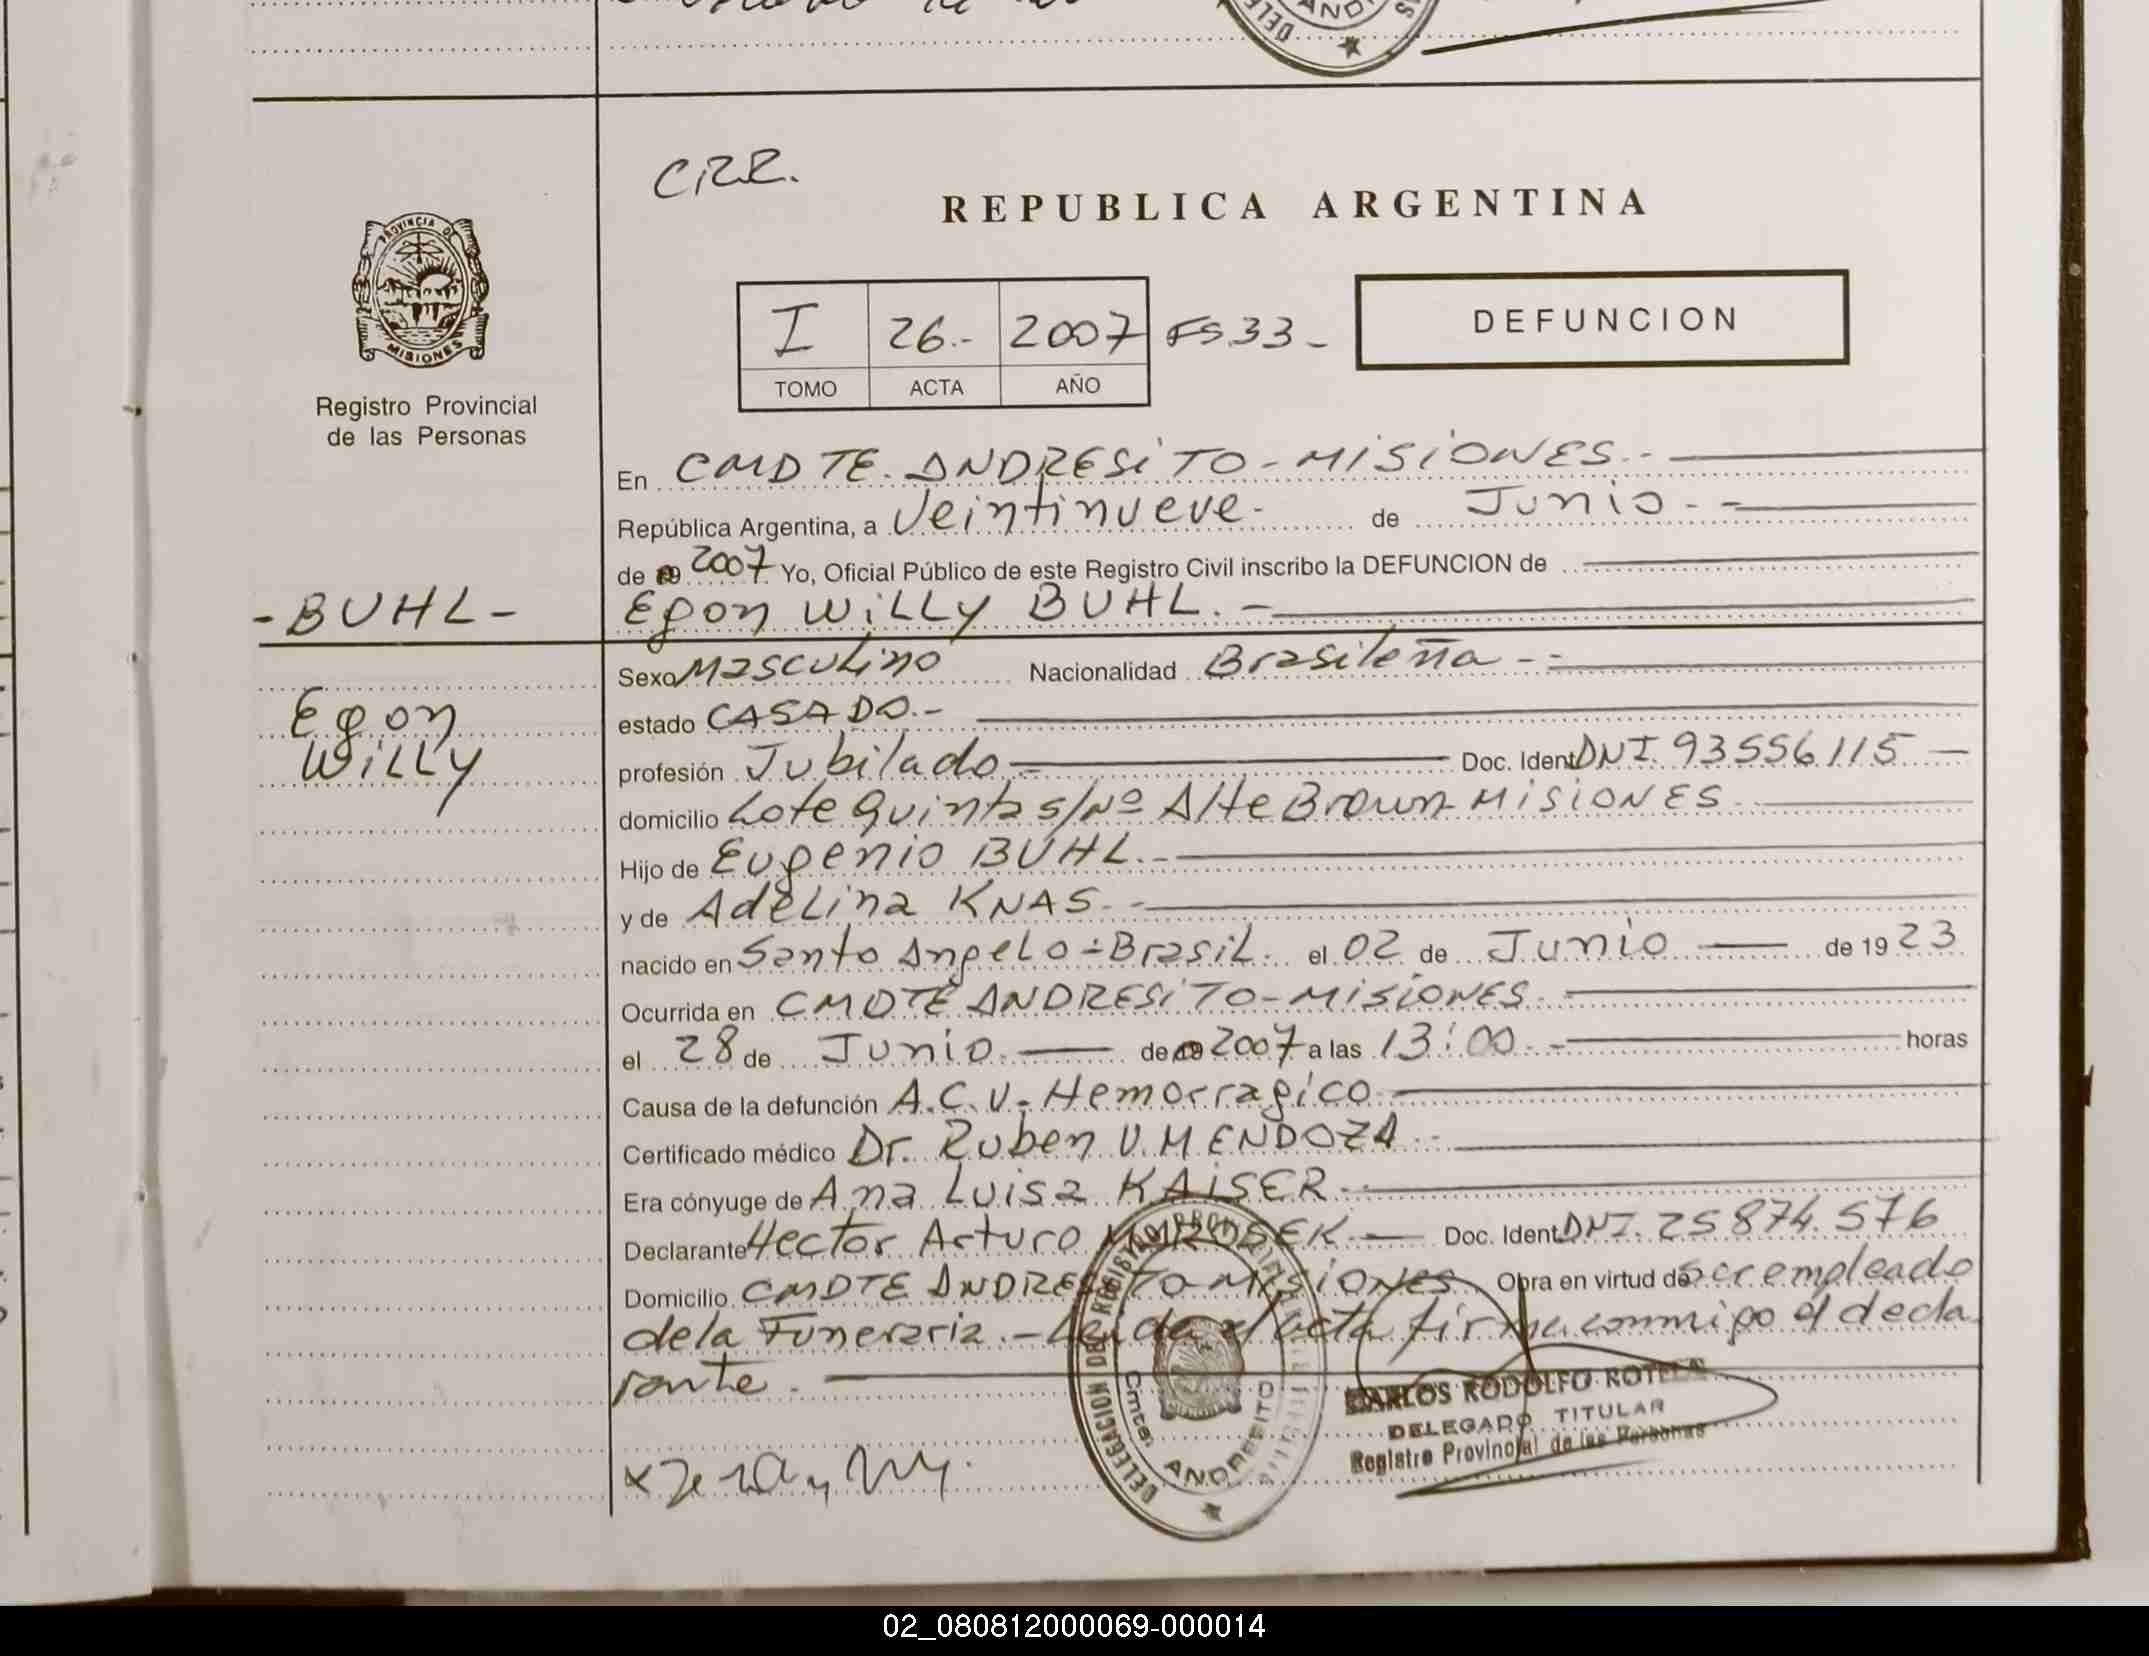 CRR.
REPUBLICA ARGENTINA
PROVINCIA DE
MISIONES
Registro Provincial
de las Personas
I 26.- 2007 FS.33-
TOMO ACTA AÑO
DEFUNCION
En CMDTE. ANDRESITO-MISIONES.-
República Argentina, a Veintinueve- de Junio.-
de 2007 Yo, Oficial Público de este Registro Civil inscribo la DEFUNCION de
-BUHL- Egon WiLLy BUHL.-
Egon
WiLLy
Sexo Masculino Nacionalidad Brasileña.-
estado CASADO.-
profesión Jubilado.- Doc. Ident DNI. 93556115.-
domicilio Lote Quinta s/Nº Alte Brown-MISIONES.
Hijo de Eugenio BUHL.-
y de Adelina KNAS.-
nacido en Santo Angelo-Brasil. el 02 de Junio de 19 23
Ocurrida en CMDTE ANDRESITO-MISIONES.
el 28 de Junio. de 2007 a las 13:00.- horas
Causa de la defunción A.C.V.-Hemorragico.
Certificado médico Dr. Ruben V. MENDOZA.-
Era cónyuge de Ana Luisa KAISER.-
Declarante Hector Arturo Doc. Ident DNI. 25874.576
Domicilio CMDTE ANDRESITO-MISIONES. Obra en virtud de ser empleado
de la Funeraria.-Leida el acta firma conmigo el decla
rante.
DELEGACION DEL REGISTRO
Cmte. ANDRESITO
CARLOS RODOLFO ROTELA
DELEGADO TITULAR
Registro Provincial de las Personas
02_080812000069-000014